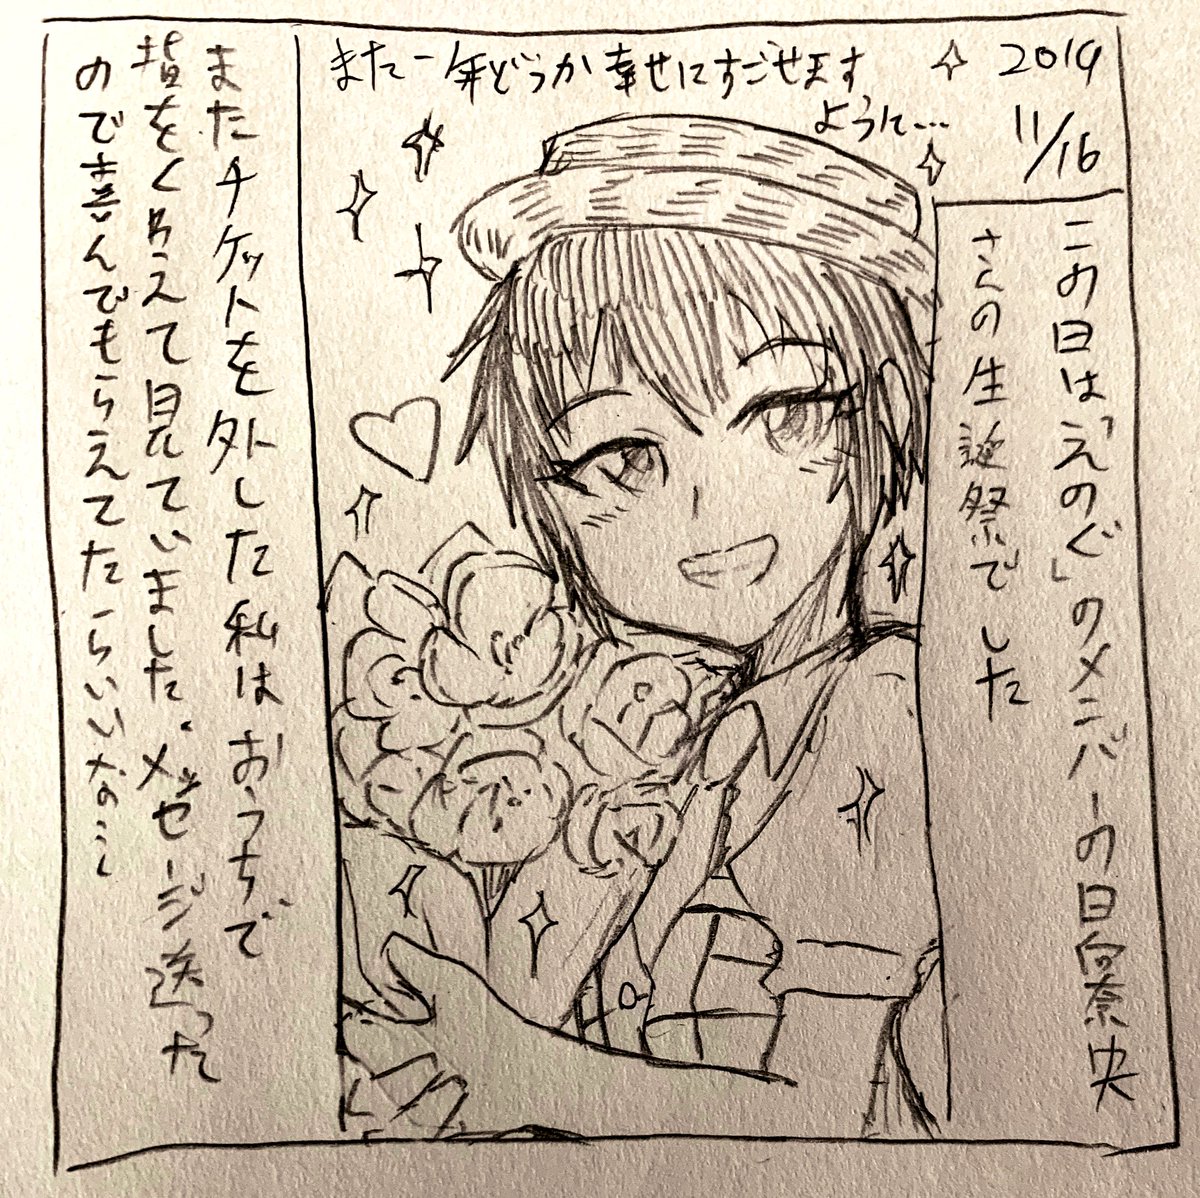 2019
11/16
この日は「えのぐ」のメンバーの日向奈央
さんの生誕祭でした
また一年どうか幸せにすごせます
ように…
またチケットを外した私はおうちで
指をくわえて見ていました。メッセージ送った
ので喜んでもらえてたらいいなの…